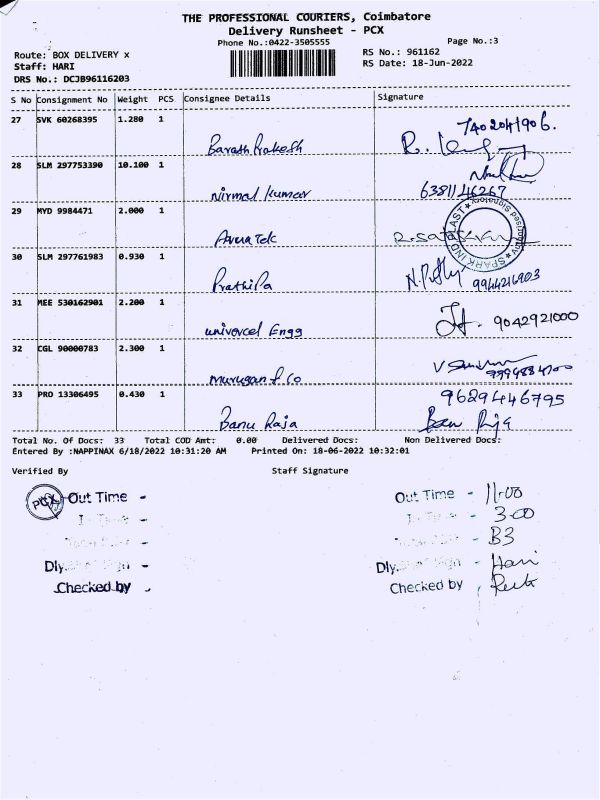 THE PROFESSIONAL COURIERS, Coimbatore
Delivery Runsheet - PCX
Phone No.:0422-3505555
Page No.:3
Route: BOX DELIVERY x
RS No.: 961162
Staff: HARI
RS Date: 18-Jun-2022
DRS No.: DCJB96116203
S No Consignment No Weight PCS Consignee Details Signature
27 SVK 60268395 1.280 1
7402041906.
Barath Prakash
28 SLM 297753390 10.100 1
Nirmal Kumar 6381146267
29 MYD 9984471 2.000 1
Avera Tek
SPARK INDPLAST
Authorised Signatory
30 SLM 297761983 0.930 1
Prathipa 9944216903
31 MEE 530162901 2.200 1
9042921000
univercel Engg
32 CGL 90000783 2.300 1
murugan & Co
33 PRO 13306495 0.430 1
9629446795
Banu Raja
Total No. Of Docs: 33 Total COD Amt: 0.00 Delivered Docs: Non Delivered Docs:
Entered By :NAPPINAX 6/18/2022 10:31:20 AM Printed On: 18-06-2022 10:32:01
Verified By Staff Signature
PCX Out Time -
Out Time - 11-00
3-00
B3
Dly.
Dly. Hari
Checked by
Checked by